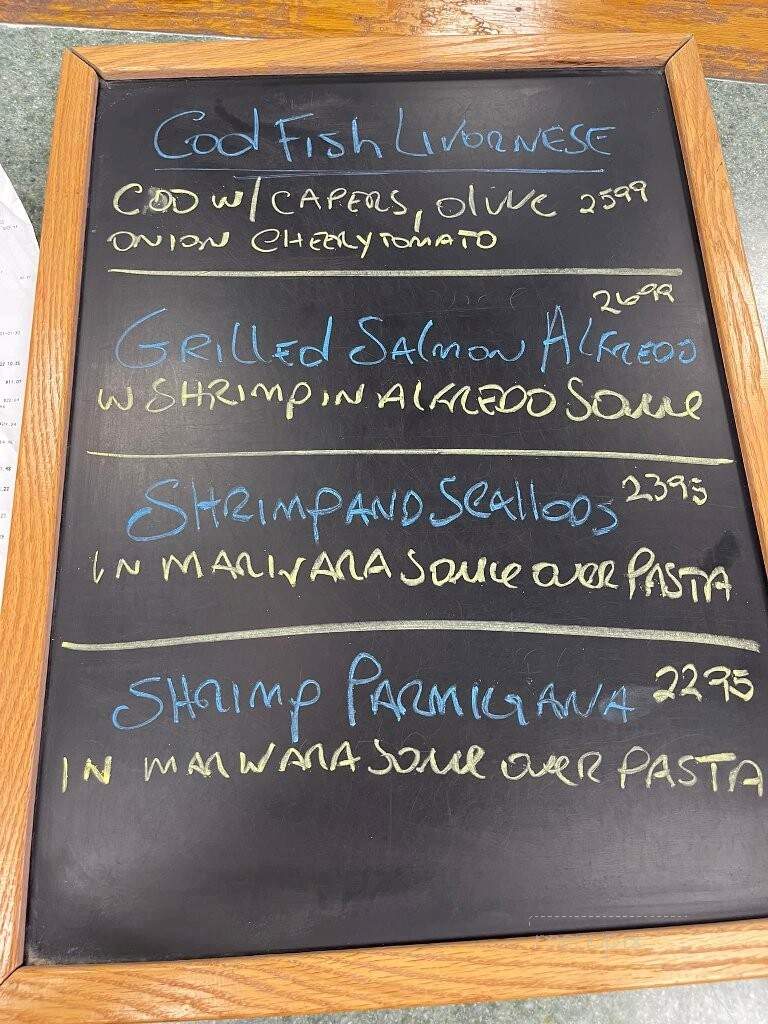 Cod Fish Livornese
COD W/ CAPERS, Olive 2599
ONION CHEERY TOMATO
2699
GRilled SAlmon AlFREDO
W SHRIMP IN AlFREDO SAUCE
SHRIMP AND SCAllops 2395
IN MARINARA SAUCE OVER PASTA
SHRIMP PARMIGANA 2295
IN MARINARA SAUCE OVER PASTA